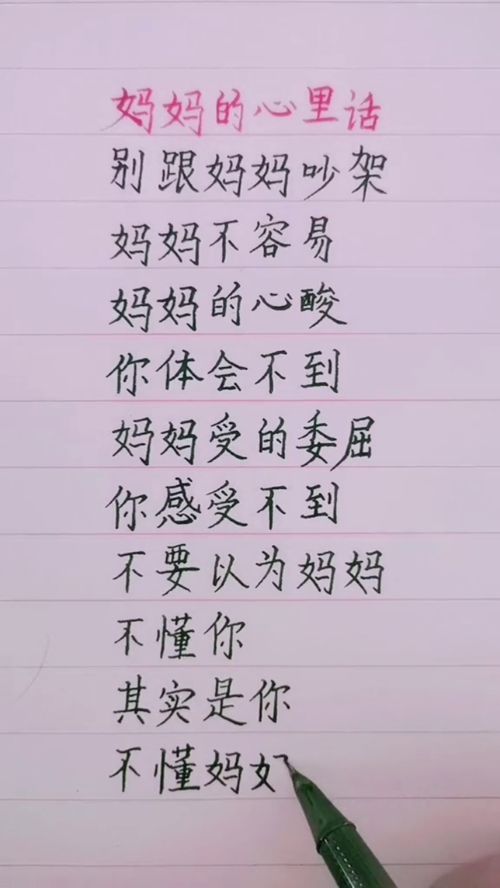 妈妈的心里话
别跟妈妈吵架
妈妈不容易
妈妈的心酸
你体会不到
妈妈受的委屈
你感受不到
不要以为妈妈
不懂你
其实是你
不懂妈